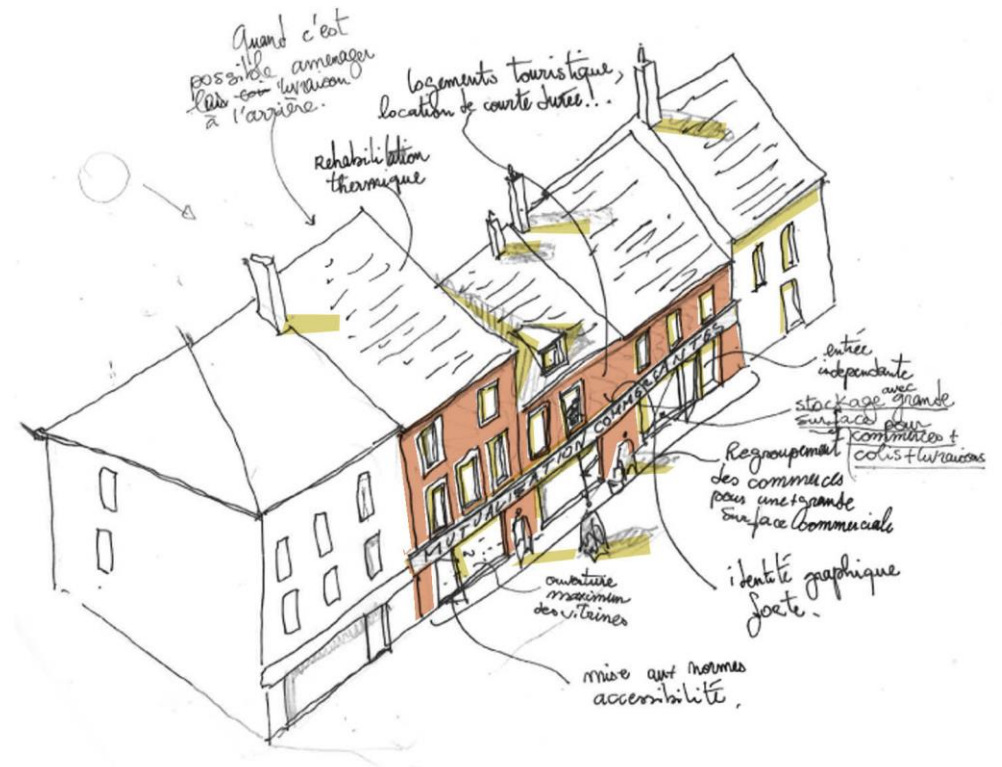 Quand c'est
possible amenager
livraison
à l'arrière.
Logements touristique,
location de courte durée!..
Rehabilitation
thermique
MUTUALISATION COMMERÇANTES
entrée
independante
stockage avec grande
surface pour
commerces +
colis + livraisons
Regroupement
des commerces
pour une + grande
surface commerciale
identité graphique
forte.
ouverture
maximum
des vitrines
mise aux normes
accessibilité.